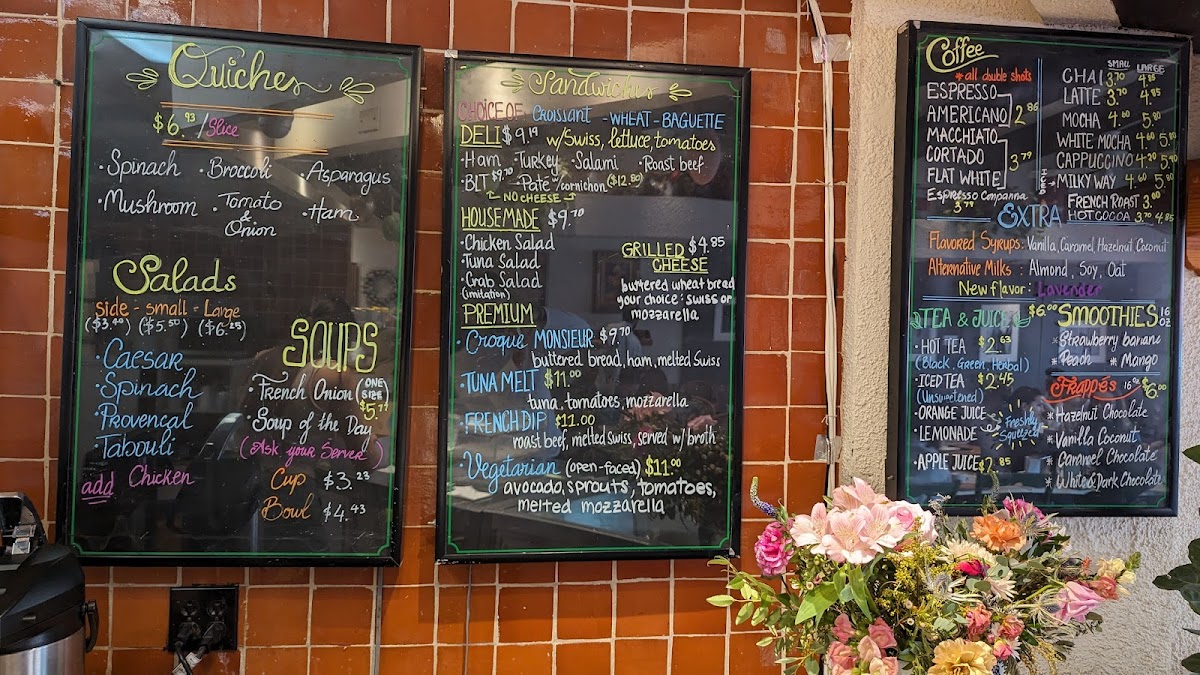 Quiches
$6.93/Slice
·Spinach ·Broccoli ·Asparagus
·Mushroom ·Tomato & Onion ·Ham
Salads
side - small - Large
($3.40) ($5.50) ($6.25)
·Caesar
·Spinach
·Provencal
·Tabouli
add Chicken
SOUPS
·French Onion (ONE SIZE)
$5.77
·Soup of the Day
(Ask your Server)
Cup $3.23
Bowl $4.43
Sandwiches
CHOICE OF Croissant - WHEAT - BAGUETTE
DELI $9.19 w/Swiss, lettuce, tomatoes
·Ham ·Turkey ·Salami ·Roast beef
·BLT $9.70 ·Pate/cornichon ($12.80)
NO CHEESE
HOUSEMADE $9.70
·Chicken Salad
·Tuna Salad
·Crab Salad
(imitation)
GRILLED $4.85
CHEESE
buttered wheat bread
your choice: swiss or
mozzarella
PREMIUM
·Croque MONSIEUR $9.70
buttered bread, ham, melted Swiss
·TUNA MELT $11.00
tuna, tomatoes, mozzarella
·FRENCH DIP $11.00
roast beef, melted swiss, served w/ broth
·Vegetarian (open-faced) $11.00
avocado, sprouts, tomatoes,
melted mozzarella
Coffee
*all double shots
ESPRESSO
AMERICANO 2.86
MACCHIATO
CORTADO 3.79
FLAT WHITE
Espresso Companna
3.79
SMALL LARGE
CHAI 3.70 4.85
LATTE 3.70 4.85
MOCHA 4.60 5.80
WHITE MOCHA 4.60 5.80
CAPPUCCINO 4.30 5.40
MILKY WAY 4.60 5.80
FRENCH ROAST 3.00
HOT COCOA 3.70 4.85
EXTRA
Flavored Syrups: Vanilla, Caramel, Hazelnut, Coconut
Alternative Milks : Almond, Soy, Oat
New flavor: Lavender
TEA & JUICE
·HOT TEA $2.63
(Black, Green, Herbal)
·ICED TEA $2.45
(Unsweetened)
·ORANGE JUICE
·LEMONADE
Freshly Squeezed
·APPLE JUICE $2.85
$6.00 SMOOTHIES 16 oz
*Strawberry banana
*Peach *Mango
Frappés 16 oz $6.00
*Hazelnut Chocolate
*Vanilla Coconut
*Caramel Chocolate
*White & Dark Chocolate